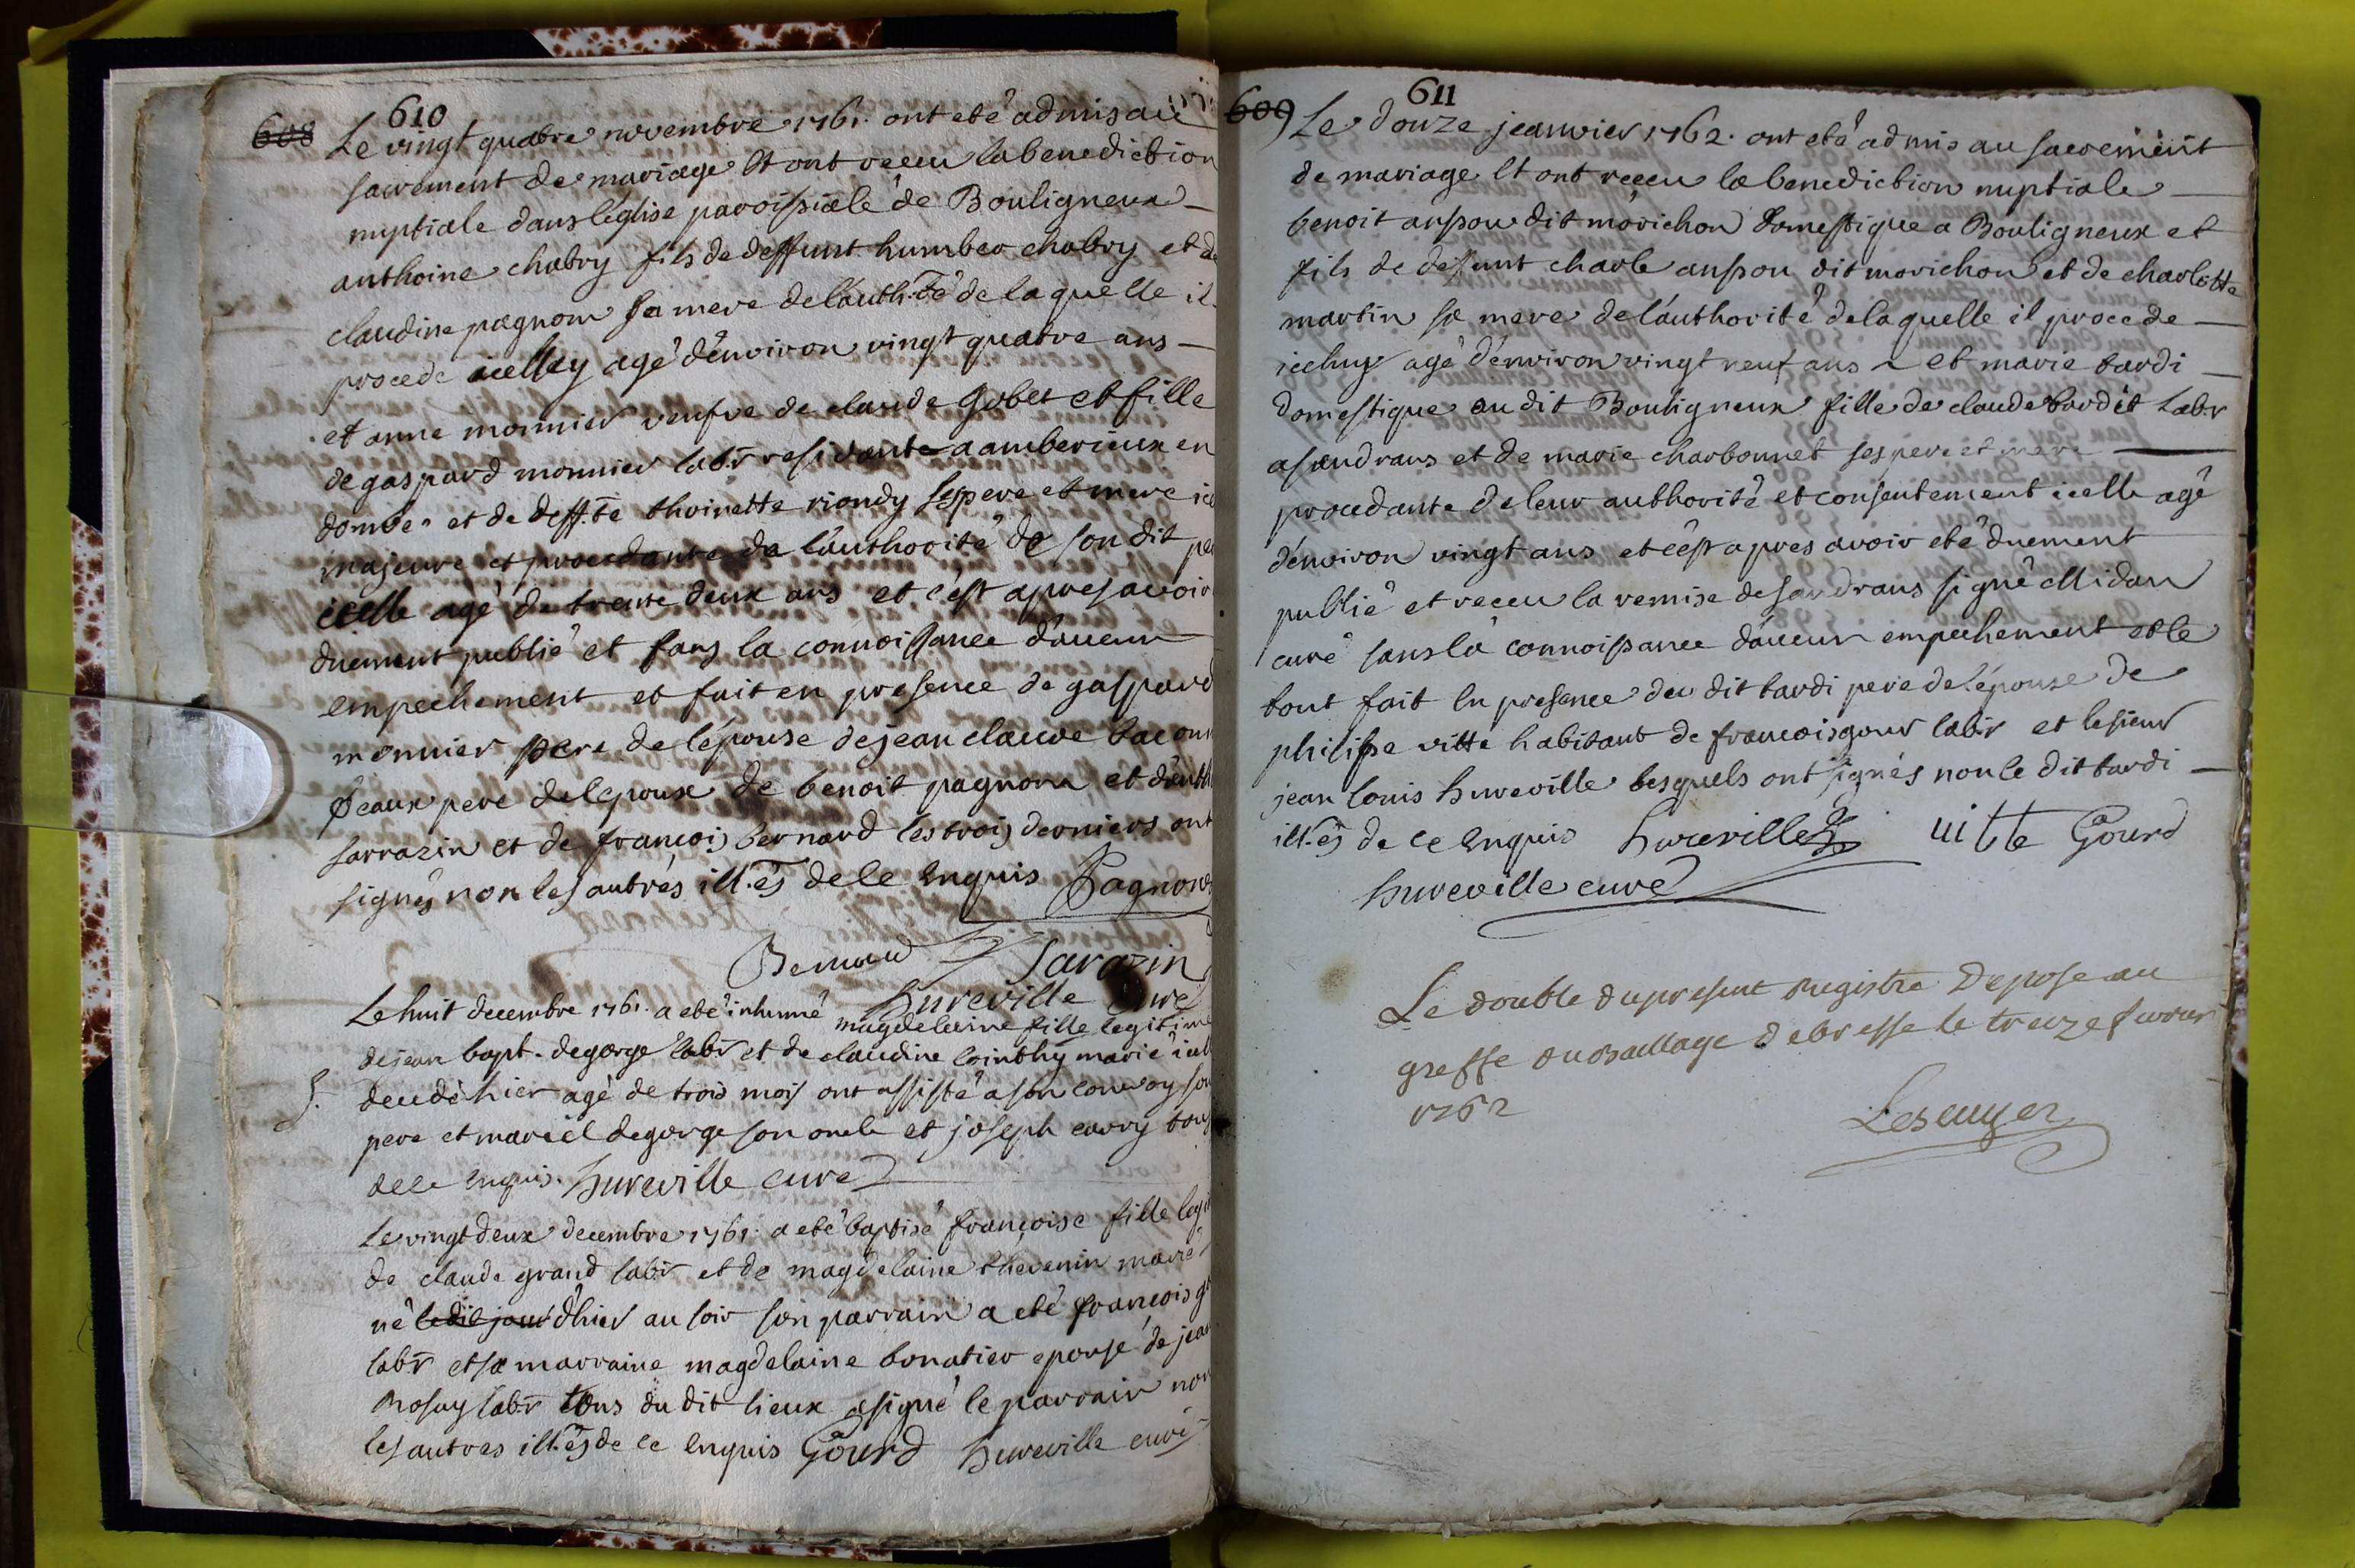 610
608 Le vingt quatre novembre 1761. ont eté admis au
sacrement de mariage Et ont receu la benediction
nuptiale dans léglise paroissiale de Bouligneux
anthoine chabry fils de deffunt humber chabry et de
claudine pagnon sa mere de láuth.té de laquelle il
procede icelluy agé dénviron vingt quatre ans
et anne monnier veufve de claude Gobet et fille
de gaspard monnier labr residante a amberieux en
dombe et de deff.te thoinette riondy ses pere et mere
majeure et procedante de láuthorité de son dit
icelle agé de trente deux ans et cést apres avoir
duement publié et sans la connoissance dáucun
empechement et fait en presence de gaspard
monnier pere de lépouse de jean claude
Beaux pere delepoux de benoit pagnon et
sarrazin et de francois bernard les trois derniers ont
signés non les autrés ill.és de ce enquis Pagnon
Bernard Sarazin
hureville curé
Le huit decembre 1761. a eté inhumé magdelaine fille legitime
de jean bapt. degorge labr et de claudine cointhy marié
decedé hier agé de trois mois ont assisté a son convoy son
pere et marcel degorge son oncle et joseph carry tous
de ce enquis. hureville curé
Le vingt deux decembre 1761. a eté baptisé françoise fille
de claude grand labr et de magdelaine thevenin marié
né le dit jour d'hier au soir son parrain a eté francois
labr et sa marraine magdelaine bonatier epouse de jean
Rosuy labr tous du dit lieux a signé le parrain non
les autres ill.és de ce enquis Gourd hureville curé
611
609 Le douze jeanvier 1762. ont eté admis au sacrement
de mariage Et ont receu la benediction nuptiale
benoit anpon dit morichon domestique a Bouligneux et
fils de defunt charle anpon dit morichon et de charlotte
martin sa mere de láuthorité de laquelle il procede
icelluy agé dénviron vingt neuf ans et marie tardi
domestique au dit Bouligneux fille de claude tardit Labr
a sandrans et de marie charbonnet ses pere et mere
procedante de leur authorité et consentement icelle agé
dénviron vingt ans et cést apres avoir eté duement
publié et receu la remise de sandrans signé Midan
curé sans la connoissance dáucun empechement et le
tout fait En presence du dit tardi pere de lépouse de
philipe vitte habitant de francois gour labr et le sieur
jean louis hureville lesquels ont signés non le dit tardi
ill.és de ce enquis hureville uitte Gourd
hureville curé
Le double du present Registre Deposé au
greffe du Baillage de bresse le treize fevrier
1762
Lescuyer